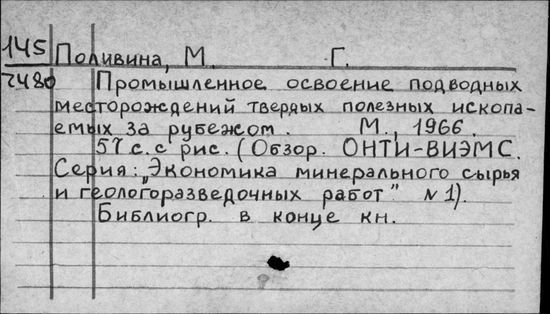 145 Поливина, М. Г.
2480 Промышленное освоение подводных
месторождений твердых полезных ископа-
емых за рубежом. М., 1966.
57 с. с рис. (Обзор. ОНТИ-ВИЭМС.
Серия: „Экономика минерального сырья
и геологоразведочных работ" N 1).
Библиогр. в конце кн.